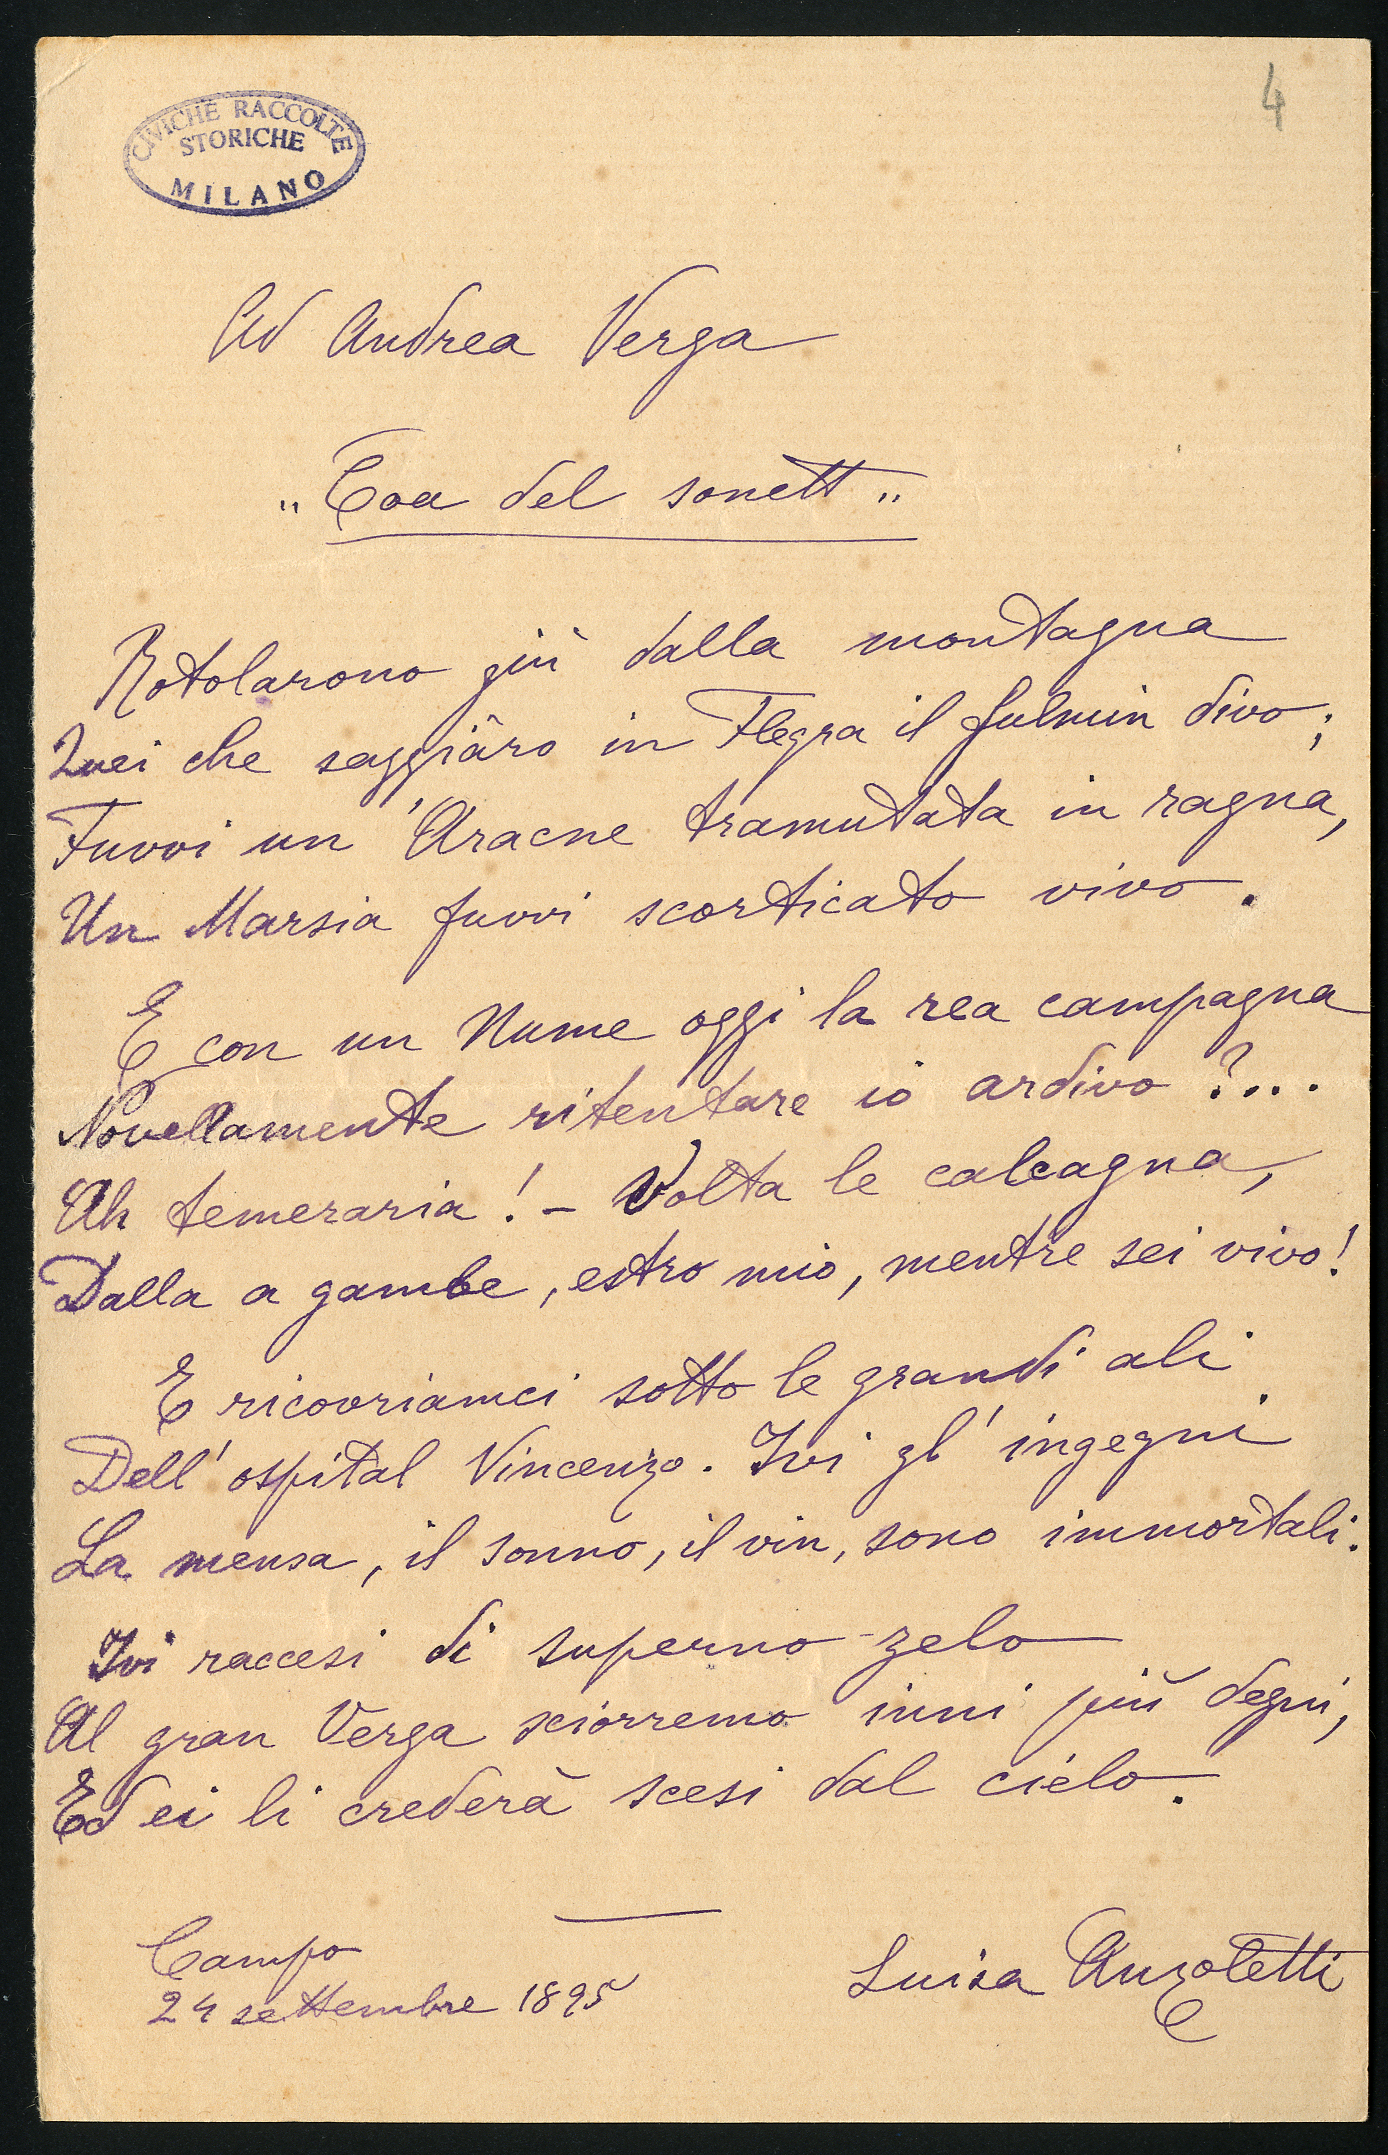 4
CIVICHE RACCOLTE
STORICHE
MILANO
Ad Andrea Verga
„ Coa del sonett „
Rotolarono giù dalla montagna
Quei che saggiâro in Flegra il fulmin divo;
Fuvvi un' Aracne tramutata in ragna,
Un Marsia fuvvi scorticato vivo.
E con un Nume oggi la rea campagna
Novellamente ritentare io ardivo?...
Ah temeraria! - Volta le calcagna,
Dalla a gambe, estro mio, mentre sei vivo!
E ricovriamci sotto le grandi ali
Dell' ospital Vincenzo. Ivi gl' ingegni
La mensa, il sonno, il vin, sono immortali.
Ivi raccesi di superno zelo
Al gran Verga sciorremo inni più degni,
Ed ei li crederà scesi dal cielo.
Campo
24 settembre 1895
Luisa Anzoletti